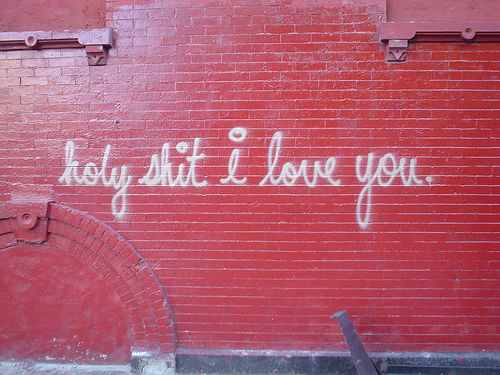 holy shit i love you.